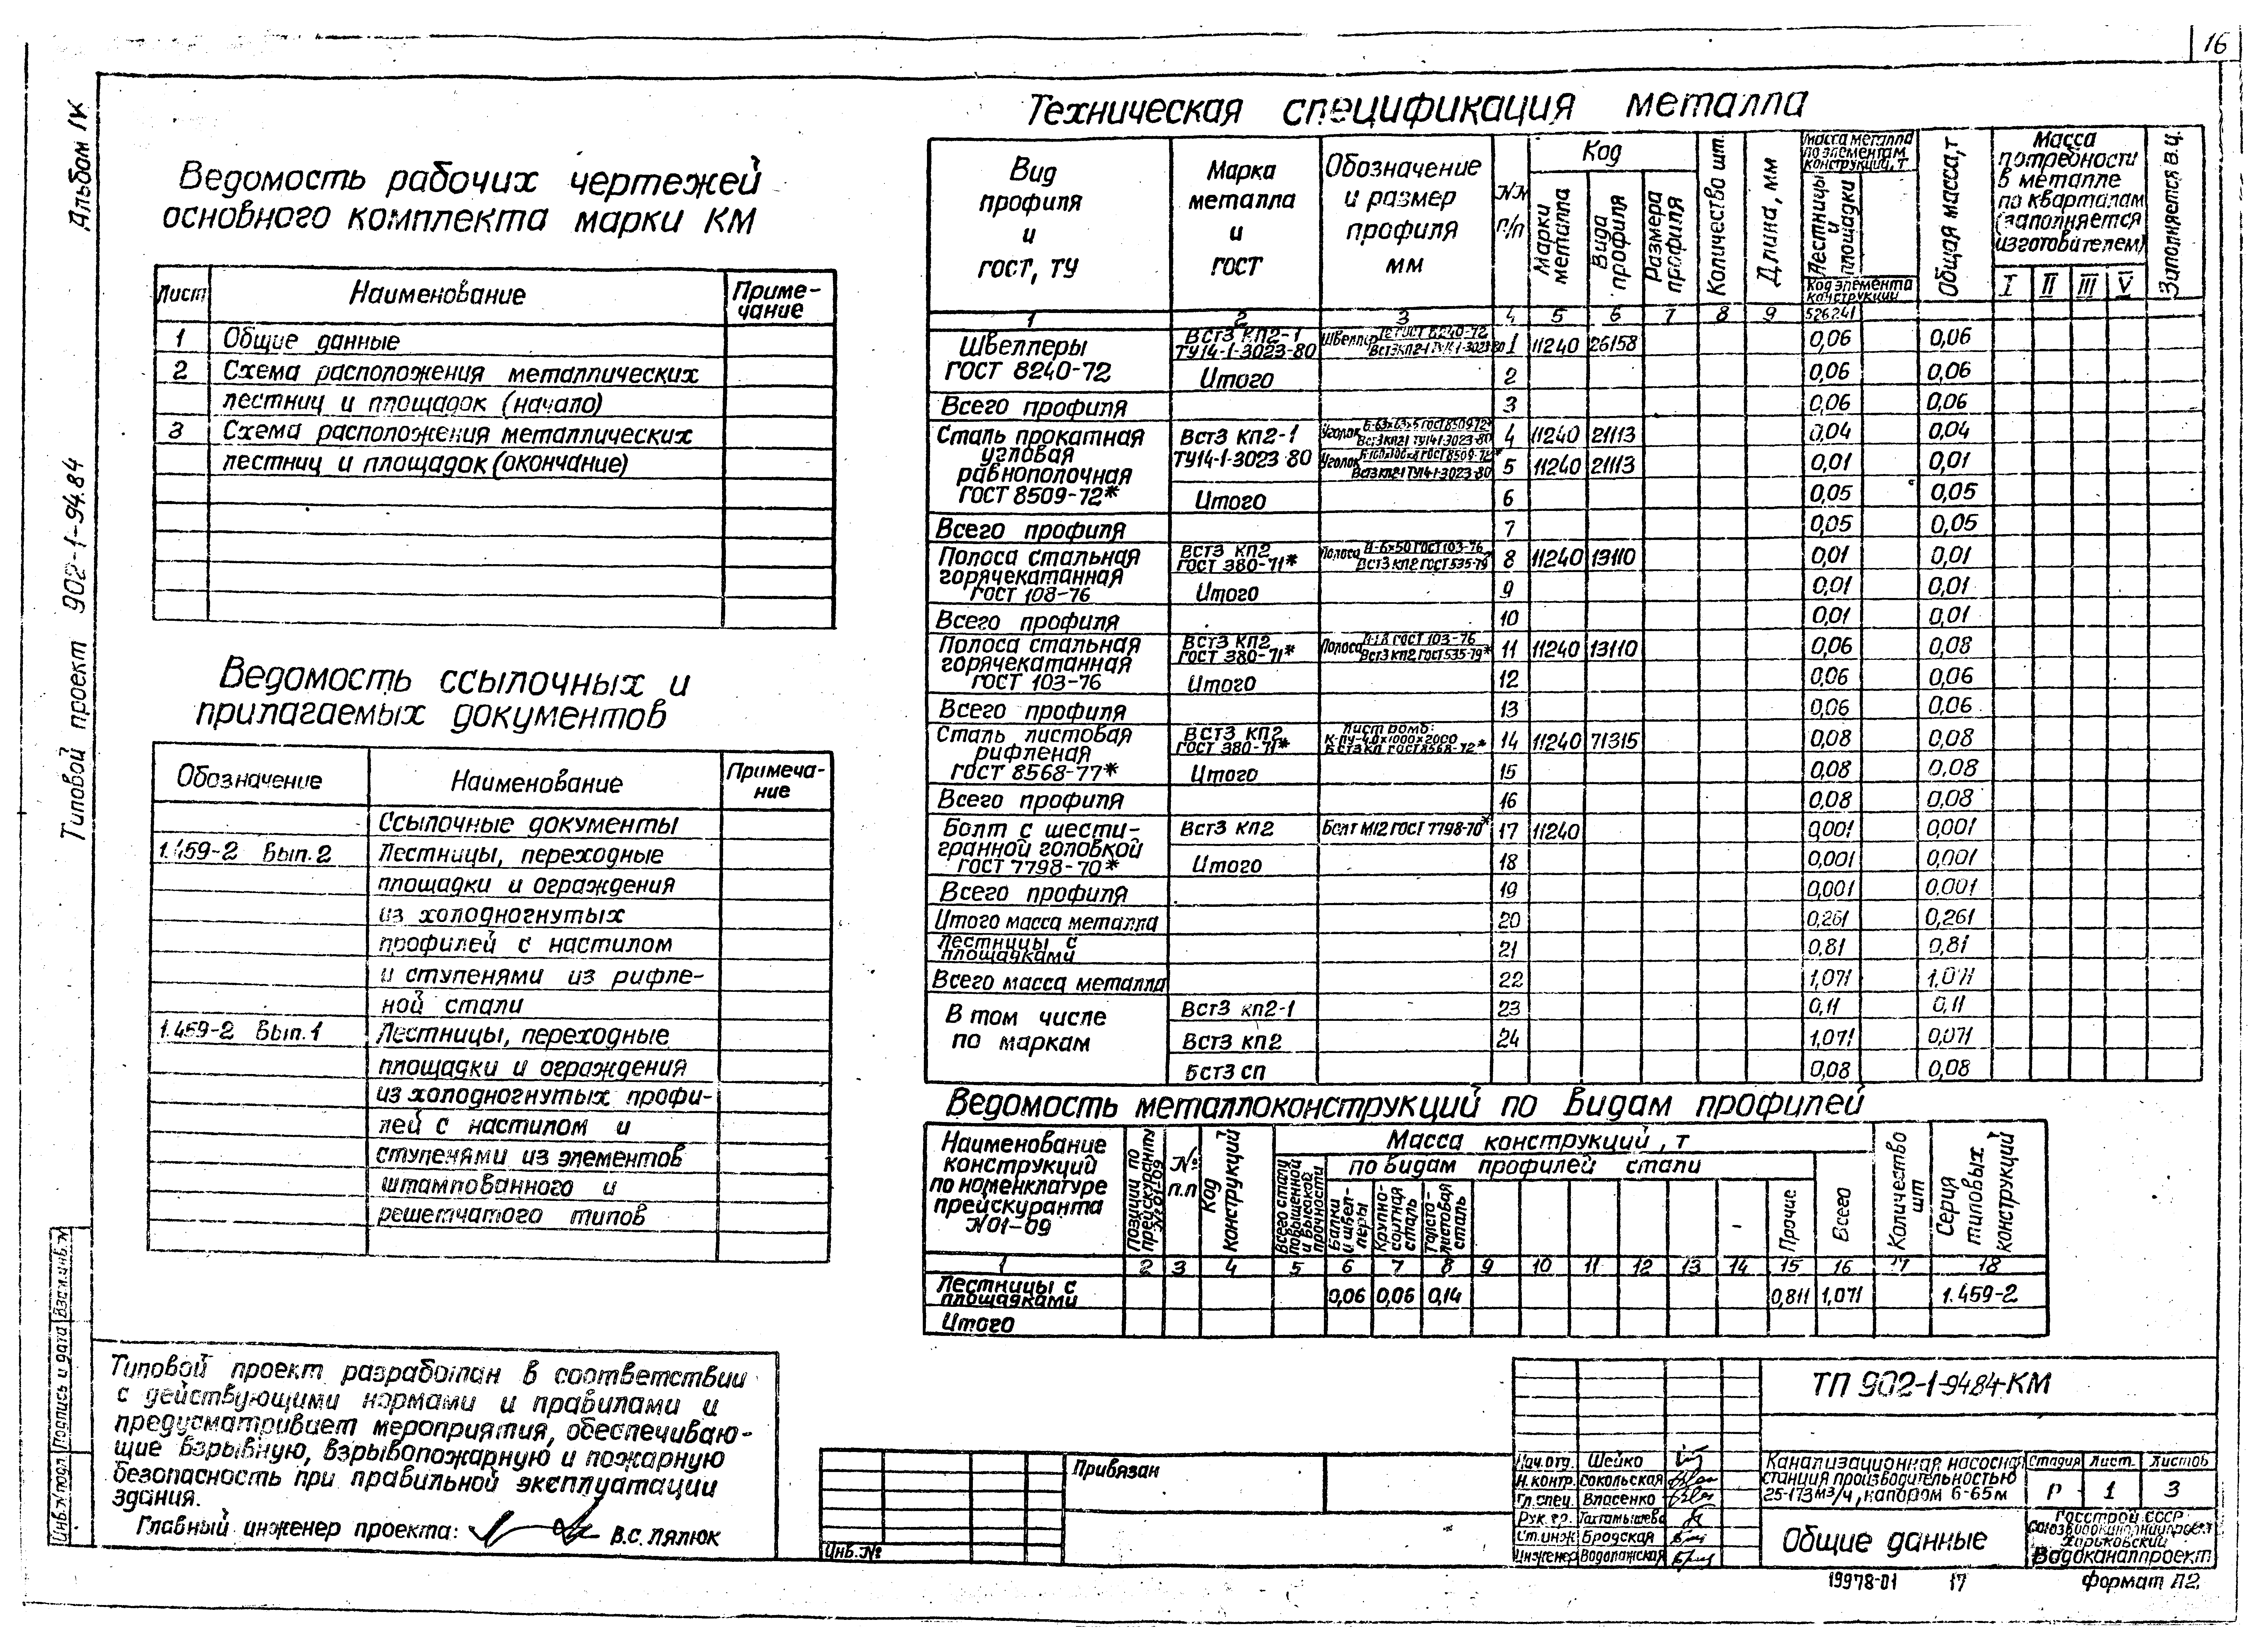 16
Альбом IV
Типовой проект 902-1-94.84
Ведомость рабочих чертежей
основного комплекта марки КМ
Лист Наименование Приме-
чание
1 Общие данные
2 Схема расположения металлических
лестниц и площадок (начало)
3 Схема расположения металлических
лестниц и площадок (окончание)
Ведомость ссылочных и
прилагаемых документов
Обозначение Наименование Примеча-
ние
Ссылочные документы
1.459-2 Вып.2 Лестницы, переходные
площадки и ограждения
из холодногнутых
профилей с настилом
и ступенями из рифле-
ной стали
1.459-2 Вып.1 Лестницы, переходные
площадки и ограждения
из холодногнутых профи-
лей с настилом и
ступенями из элементов
штампованного и
решетчатого типов
Техническая спецификация металла
Вид
профиля
и
ГОСТ, ТУ
Марка
металла
и
ГОСТ
Обозначение
и размер
профиля
мм
NN
п/п
Код
Марки
металла
Вида
профиля
Размера
профиля
Количество шт.
Длина, мм
Масса металла
по элементам
конструкций, т
Лестницы
и
площадки
Код элемента
конструкции
Общая масса, т
Масса
потребности
в металле
по кварталам
(заполняется
изготовителем)
I II III V
Заполняется В.Ц.
1 2 3 4 5 6 7 8 9 526241
Швеллеры
ГОСТ 8240-72
ВСт3 КП2-1
ТУ14-1-3023-80
Швеллер
ВСт3КП2-1 ТУ14-1-3023-80
1 11240 26158 0,06 0,06
Итого 2 0,06 0,06
Всего профиля 3 0,06 0,06
Сталь прокатная
угловая
равнополочная
ГОСТ 8509-72*
ВСт3 КП2-1
ТУ14-1-3023 80
Уголок Б-63х63х5 ГОСТ8509-72*
ВСт3КП2-1 ТУ14-1-3023-80
4 11240 21113 0,04 0,04
Уголок
ВСт3КП2-1 ТУ14-1-3023-80
5 11240 21113 0,01 0,01
Итого 6 0,05 0,05
Всего профиля 7 0,05 0,05
Полоса стальная
горячекатанная
ГОСТ 108-76
ВСт3 КП2
ГОСТ 380-71*
Полоса 6х50 ГОСТ 103-76
ВСт3 КП2 ГОСТ535-79
8 11240 13110 0,01 0,01
Итого 9 0,01 0,01
Всего профиля 10 0,01 0,01
Полоса стальная
горячекатанная
ГОСТ 103-76
ВСт3 КП2
ГОСТ 380-71*
Полоса ГОСТ 103-76
ВСт3 КП2 ГОСТ535-79*
11 11240 13110 0,06 0,08
Итого 12 0,06 0,06
Всего профиля 13 0,06 0,06
Сталь листовая
рифленая
ГОСТ 8568-77*
ВСт3 КП2
ГОСТ 380-71*
Лист ромб.
К-ПУ-4,0х1000х2000
14 11240 71315 0,08 0,08
Итого 15 0,08 0,08
Всего профиля 16 0,08 0,08
Болт с шести-
гранной головкой
ГОСТ 7798-70*
ВСт3 КП2 Болт М12 ГОСТ 7798-70* 17 11240 0,001 0,001
Итого 18 0,001 0,001
Всего профиля 19 0,001 0,001
Итого масса металла 20 0,261 0,261
Лестницы с
площадками
21 0,81 0,81
Всего масса металла 22 1,071 1,071
В том числе
по маркам
ВСт3 кп2-1 23 0,11 0,11
ВСт3 кп2 24 1,071 0,071
БСт3 сп 0,08 0,08
Ведомость металлоконструкций по видам профилей
Наименование
конструкций
по номенклатуре
прейскуранта
N01-09
Позиции по
прейскуранту
№ 01-09
№
п.п
Код
конструкций
Масса конструкций, т
Всего стали
повышенной
и высокой
прочности
по видам профилей стали
Балки
и швел-
леры
Крупно-
сортная
сталь
Толсто-
листовая
сталь
Прочие
Всего
Количество
шт
Серия
типовых
конструкций
1 2 3 4 5 6 7 8 9 10 11 12 13 14 15 16 17 18
Лестницы с
площадками
0,06 0,06 0,14 0,811 1,071 1.459-2
Итого
Типовой проект разработан в соответствии
с действующими нормами и правилами и
предусматривает мероприятия, обеспечиваю-
щие взрывную, взрывопожарную и пожарную
безопасность при правильной эксплуатации
здания.
Главный инженер проекта: В.С. Лялюк
Инв.№ подл. Подпись и дата Взам.инв.№
Привязан
Инв. №
ТП 902-1-94.84-КМ
Нач.отд. Шейко
Н.контр. Сокольская
Гл.спец. Власенко
Рук.гр. Тахтамышева
Ст.инж Бродская
Инженер Водопажская
Канализационная насосная
станция производительностью
25-173 м³/ч, напором 6-65м
Стадия Лист. Листов
Р 1 3
Общие данные
Госстрой СССР
Союзводоканалниипроект
Харьковский
Водоканалпроект
19978-01 17 Формат А2